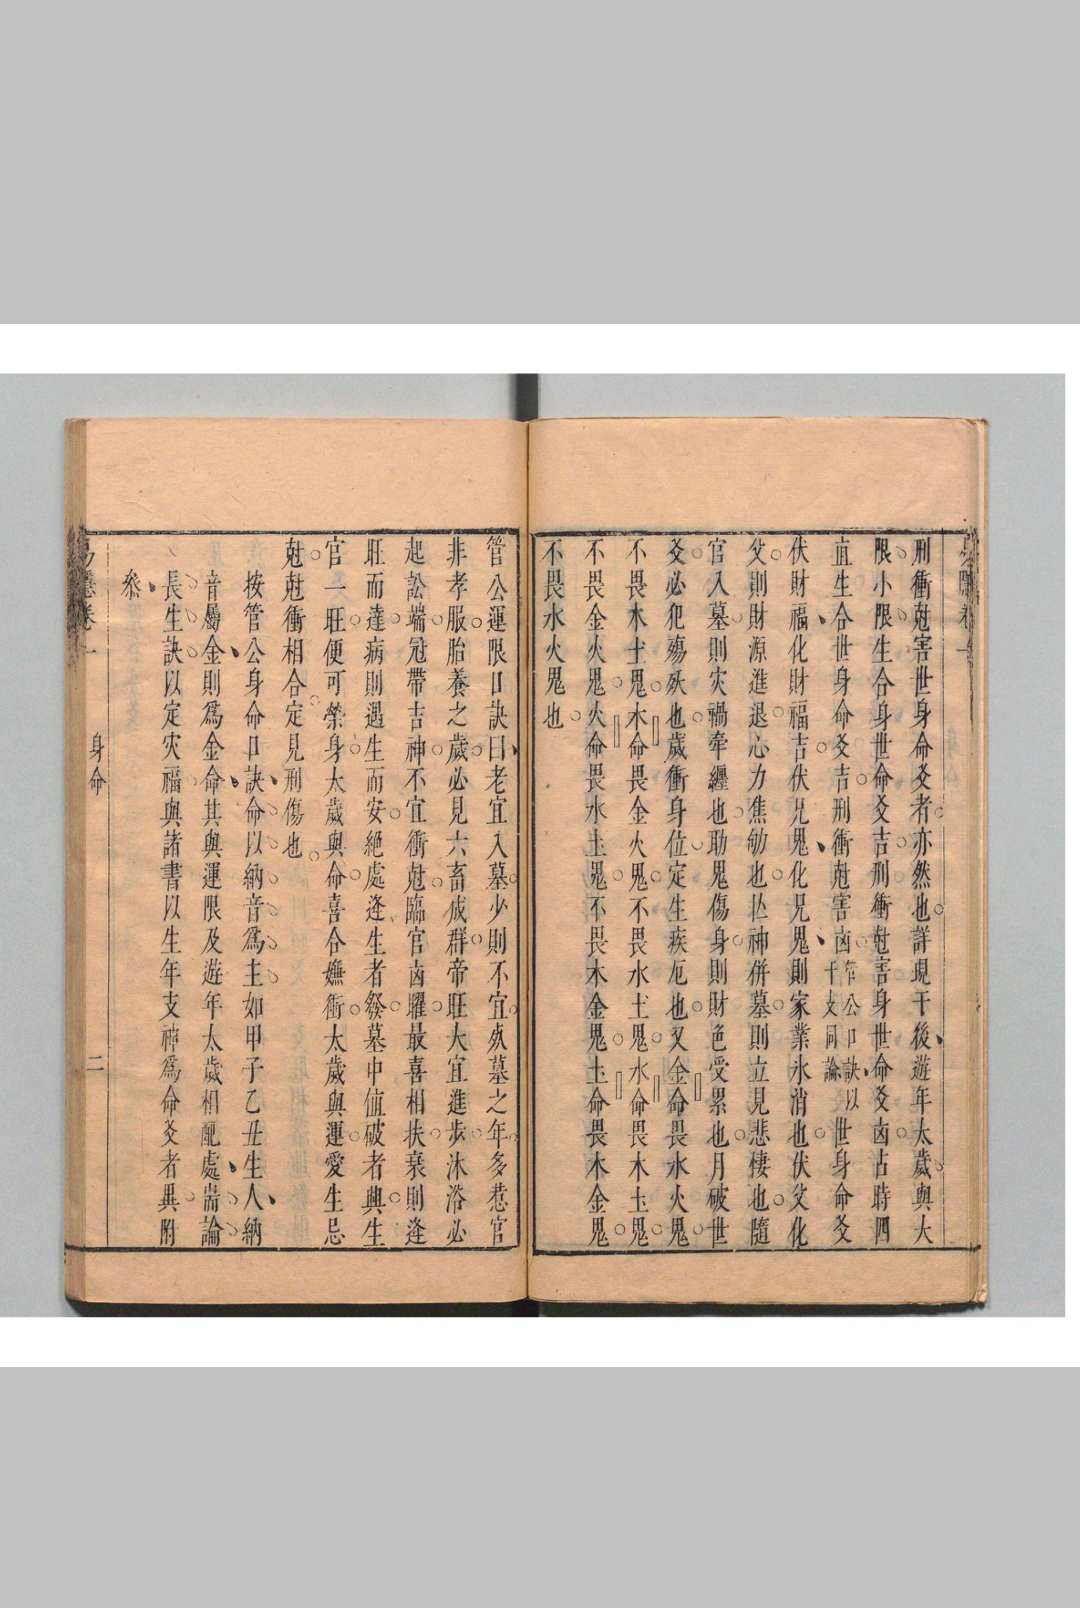 刑衝尅害世身命爻者亦然也詳現干後遊年太歲與大
限小限生合身世命爻吉刑衝尅害身世命爻凶古時四
直生合世身命爻吉刑衝尅害凶管公口訣以世身命爻
干支同論
伏財福化財福吉伏兄鬼化兄鬼則家業氷消也伏父化
父則財源進退心力焦劬也亡神併墓則立見悲悽也隨
官入墓則灾禍牽纏也助鬼傷身則財色受累也月破世
爻必犯殤殀也歲衝身位定生疾厄也又金命畏水火鬼
不畏木土鬼木命畏金火鬼不畏水土鬼水命畏木土鬼
不畏金火鬼火命畏水土鬼不畏木金鬼土命畏木金鬼
不畏水火鬼也
管公運限口訣曰老宜入墓少則不宜庫墓之年多惹官
非孝服胎養之歲必見六畜成群帝旺大宜進步沐浴必
起訟端冠帶吉神不宜衝尅臨官凶曜最喜相扶衰則逢
旺而達病則遇生而安絕處逢生者發墓中值破者興生
官一旺便可榮身太歲與命喜合嫌衝大歲與運愛生忌
尅尅衝相合定見刑傷也
按管公身命口訣命以納音爲主如甲子乙丑生人納
音屬金則爲金命其與運限及遊年太歲相配處耑論
長生訣以定灾福與諸書以生年支神爲命爻者異附
叅
易隱卷一
身命
二